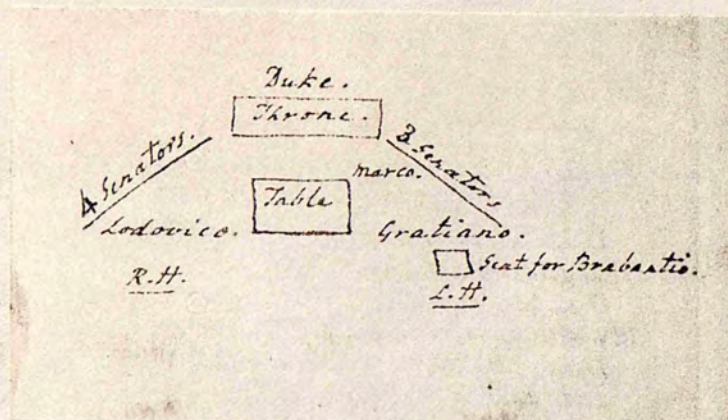 Duke.
Throne.
4 Senators.
3 Senators
Marco.
Table
Lodovico.
Gratiano.
Seat for Brabantio.
R.H.
L.H.